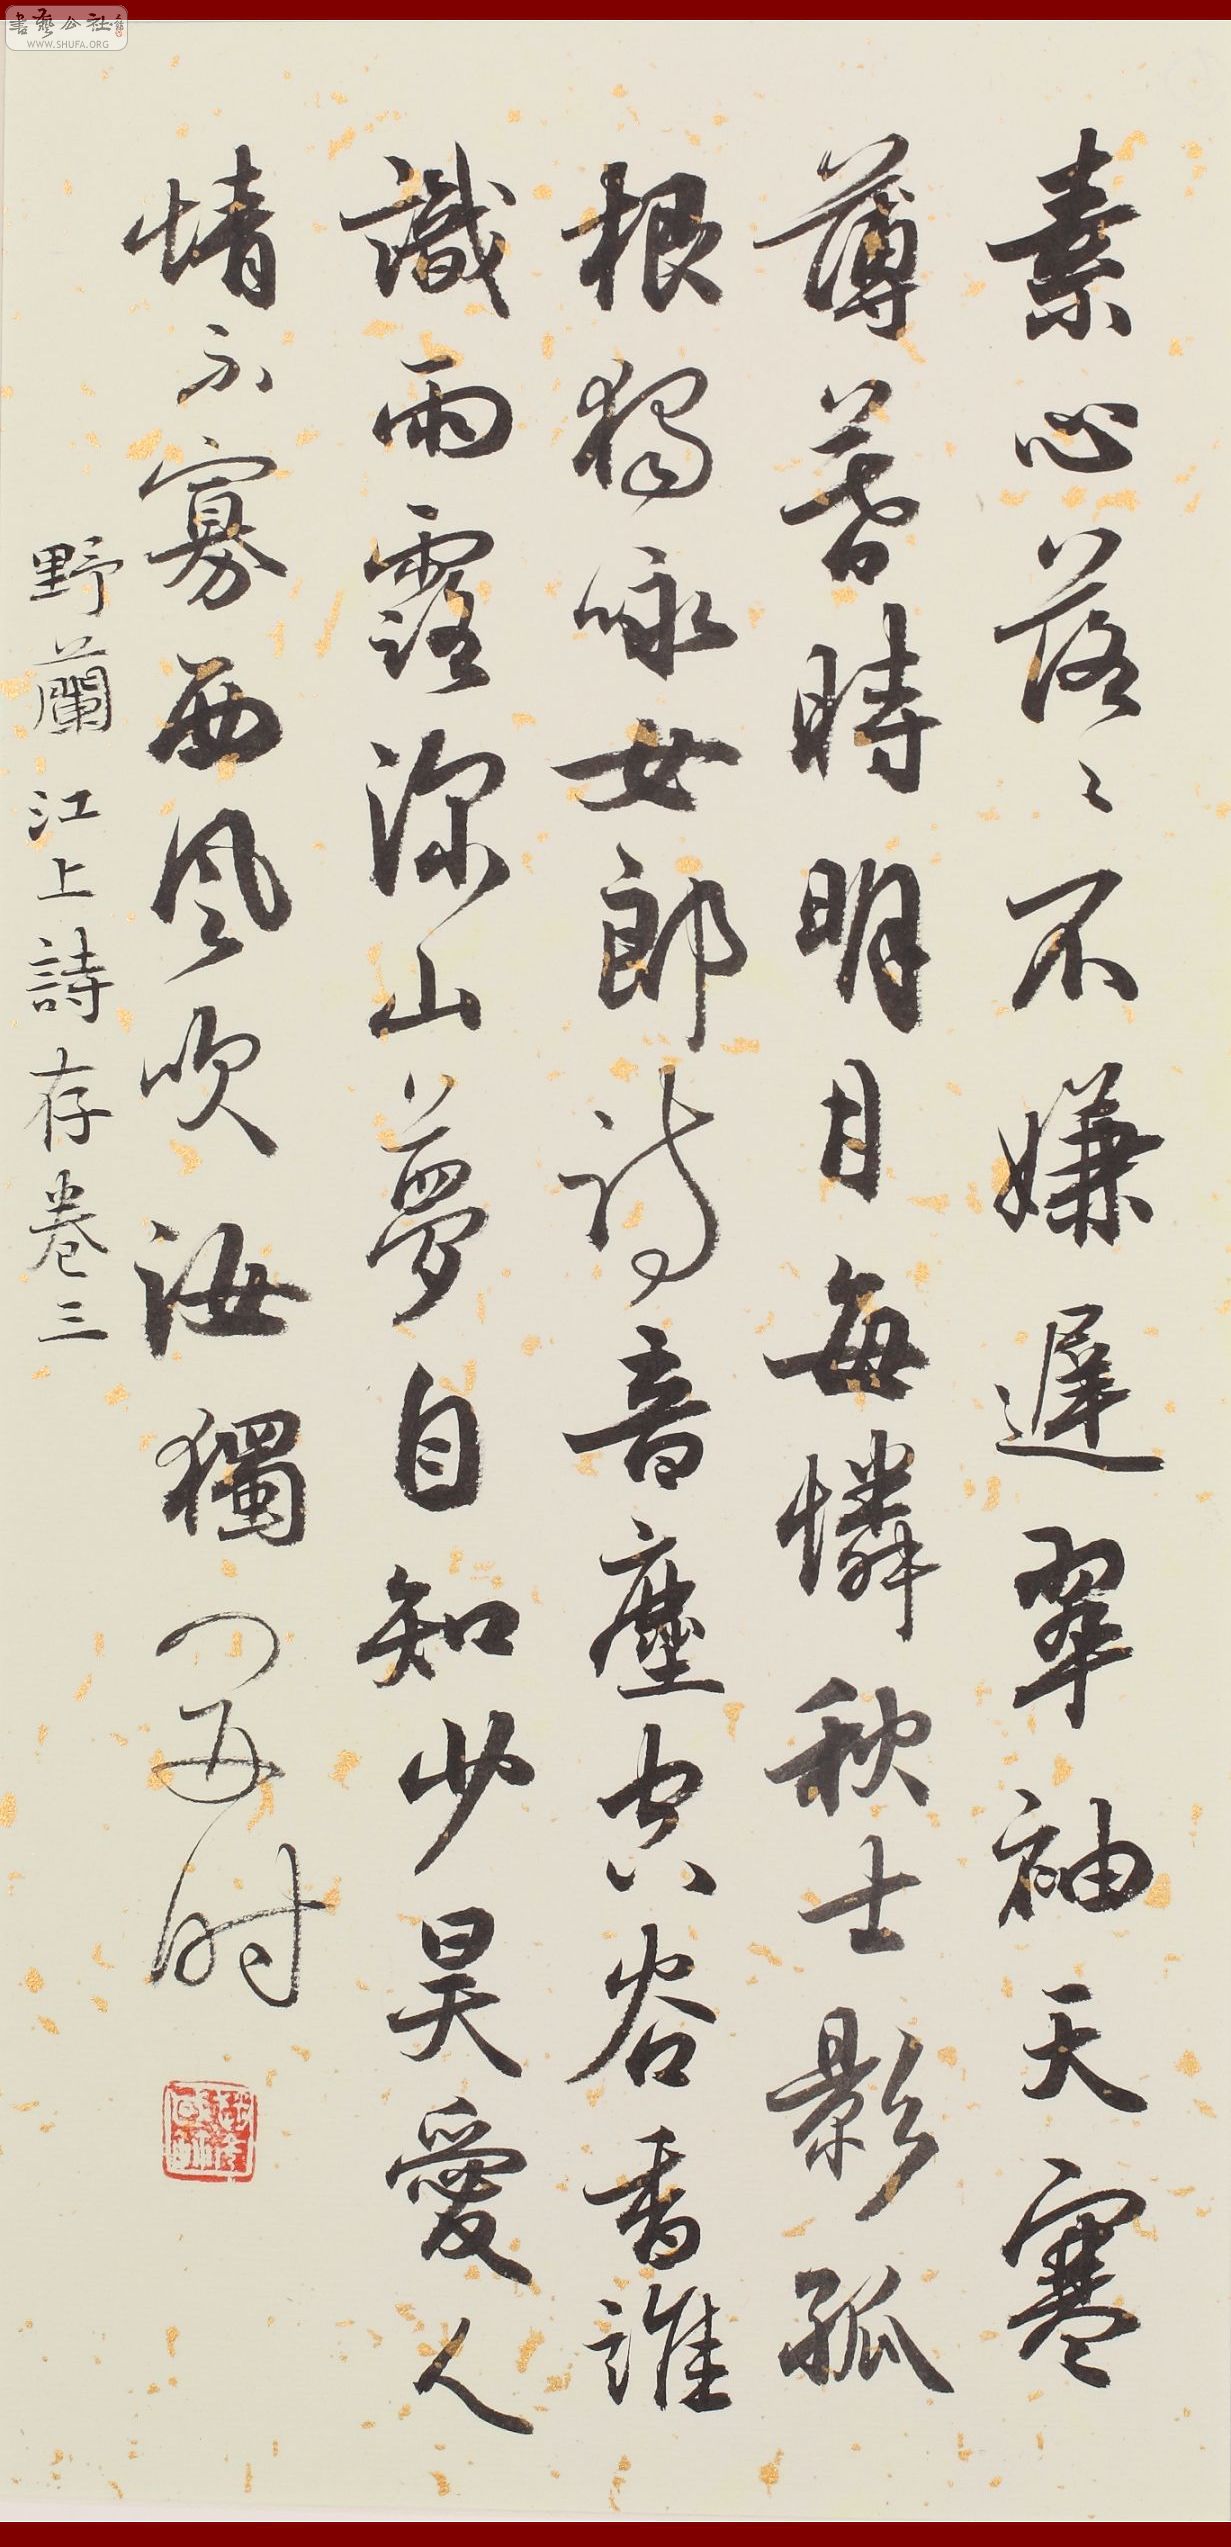 素心落〻不嫌遲翠袖天寒
薄暮時明月每憐秋士影孤
根獨咏女郎詩音塵空谷香誰
識雨露深山夢自知少昊愛人
情不寡西風吹汝獨
野蘭 江上詩存卷三
書藝公社
WWW.SHUFA.ORG